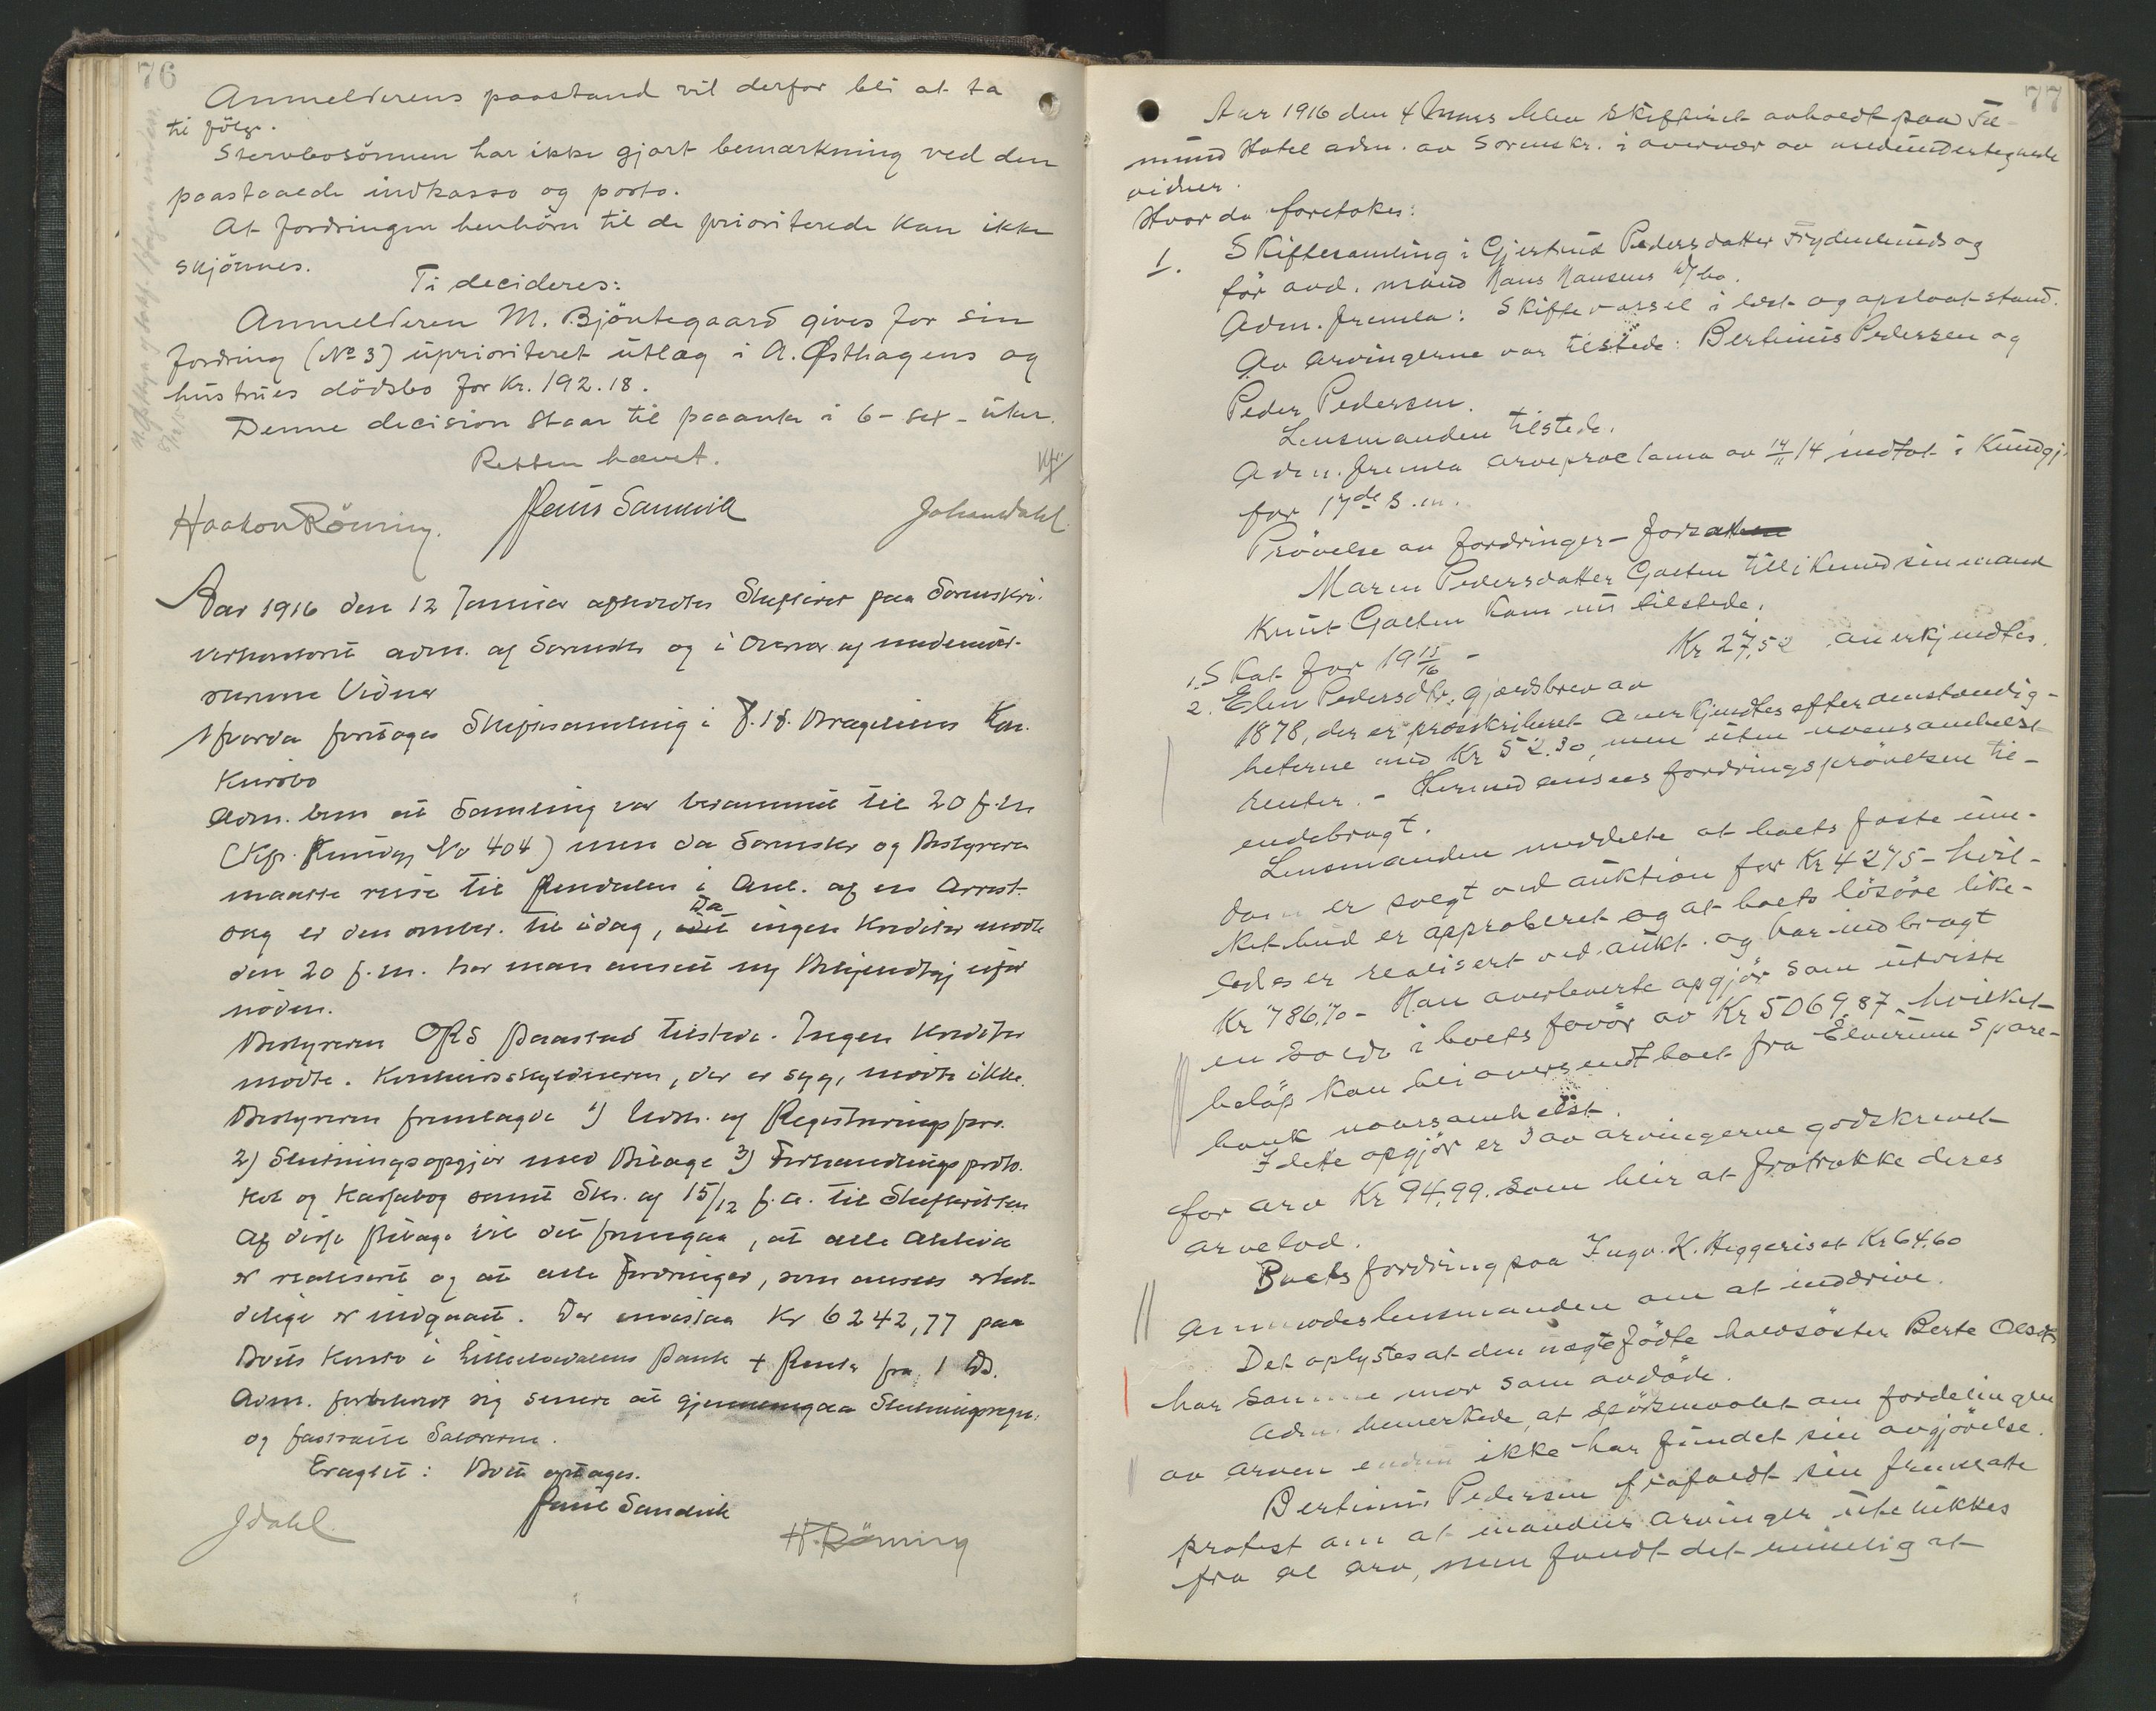 76
Anmelderens paastand vil derfor bli at ta
til följe.
Stervbosönnen har ikke gjort bemærkning ved den
paastaaede indkasso og porto.
At fordringen henhörer til de prioriterede kan ikke
skjönnes.
Ti decideres:
Anmelderen M. Bjöntegaard gives for sin
fordring (No 3) uprioriteret utlæg i A. Østhagens og
hustrues dödsbo for Kr. 192.18.
Denne decision staar til paaanke i 6-sex-uker.
Retten hævet.
Haakon Röming. Sandvik Johan Dahl
Aar 1916 den 12 Januar afholdtes Skifteret paa Sorenskri-
verkontoret adm. af Sorenskr og i Overvær af
Vidner
Hvorda foretoges Skiftesamling i Kon-
kursbo
Adm. bem at Samling var berammet til 20 f.m
(Kfr. Kundgj No 404) men da Sorenskr og Bestyreren
maatte reise til Rendalen i Anl. af en Arrest-
sag er den omber. til idag, Da ingen Kreditor mødte
den 20 f.m. har man anseet ny Bekjendtgj ufor
nöden.
Bestyreren ORS Paastad tilstede. Ingen Kreditor
mödte. Konkursskyldneren, der er syg, mödte ikke.
Bestyreren fremlagde 1) Udsk. af Registreringsforr.
2) Slutningsopgjör med Bilage 3) Forhandlingsproto-
kol og Kassabog samt Skr. af 15/12 f.a. til Skifteretten
Af disse Bilage vil det fremgaa, at alle Aktiva
er realiseret og at alle Fordringer, som ansees erhol-
delige er indgaaet. Der indestaar Kr 6242,77 paa
Boets Konto i Lilleelvedalens Bank + Rente fra 1 ds.
Adm. forbeholdt sig senere at gjennemgaa Slutningsregn.
og fastsætte Salærerne.
Eragtet: Boet optages.
J Dahl. Sandvik
H. Röming
77
Aar 1916 den 4 blev skifteret avholdt paa Fæ-
mund Hotel adm. av Sorenskr. i overvær av medundertegnede
vidner.
Hvor da foretokes:
1. Skiftesamling i Gjertrud Pedersdatter Frydenlunds og
för avd. mand Hans Hansens d/bo.
Adm. fremla: Skiftevarsel i læst og apslaat stand.
Av arvingerne var tilstede: Bertinus Pedersen og
Peder Pedersen.
Lensmanden tilstede.
Adm. fremla arveproclama av 14/11 14 indtat i Kundgj.
for 17de s.m.
Prövelse av fordringer -
Maren Pedersdatter Galten tillikemed sin mand
Knut Galten kom nu tilstede.
1. Skat for 19 15/16 - Kr 27,52 anerkjendtes.
2. Elen Pedersdtr. gjældsbrev av
1878, der er præskriberet anerkjendtes efter omstændig-
heterne med Kr 52.30, men uten noensomhelst
renter. - Hermed ansees fordringsprövelsen til-
endebragt.
Lensmanden meddelte at boets faste eien-
dom er solgt ved auktion for Kr 4275 - hvil-
ket bud er approberet og at boets lösöre like-
ledes er realisert ved aukt. og har indbragt
Kr 786,70 - Han overleverte opgjör som utviste
en saldo i boets favör av Kr 5069,87 hvilket
belöp kan bli oversendt boet fra Elverum Spare-
bank naarsomhelst.
I dette opgjör er 3 av arvingerne godskrevet
for arv Kr 94,99. som blir at fratrække deres
arvelod.
Boets fordring paa Ingv. K. Heggeriset Kr 64,60
anmodes lensmanden om at inddrive.
Det oplystes at den uegtefödte halvsöster Berte Olsdtr
har samme mor som avdöde.
Adm. bemerkede, at spörsmaalet om fordelingen
av arven endnu ikke har fundet sin avgjörelse.
Bertinus Pedersen frafaldt sin fremsatte
protest om at mandens arvinger utelukkes
fra al arv, men fandt det rimelig at